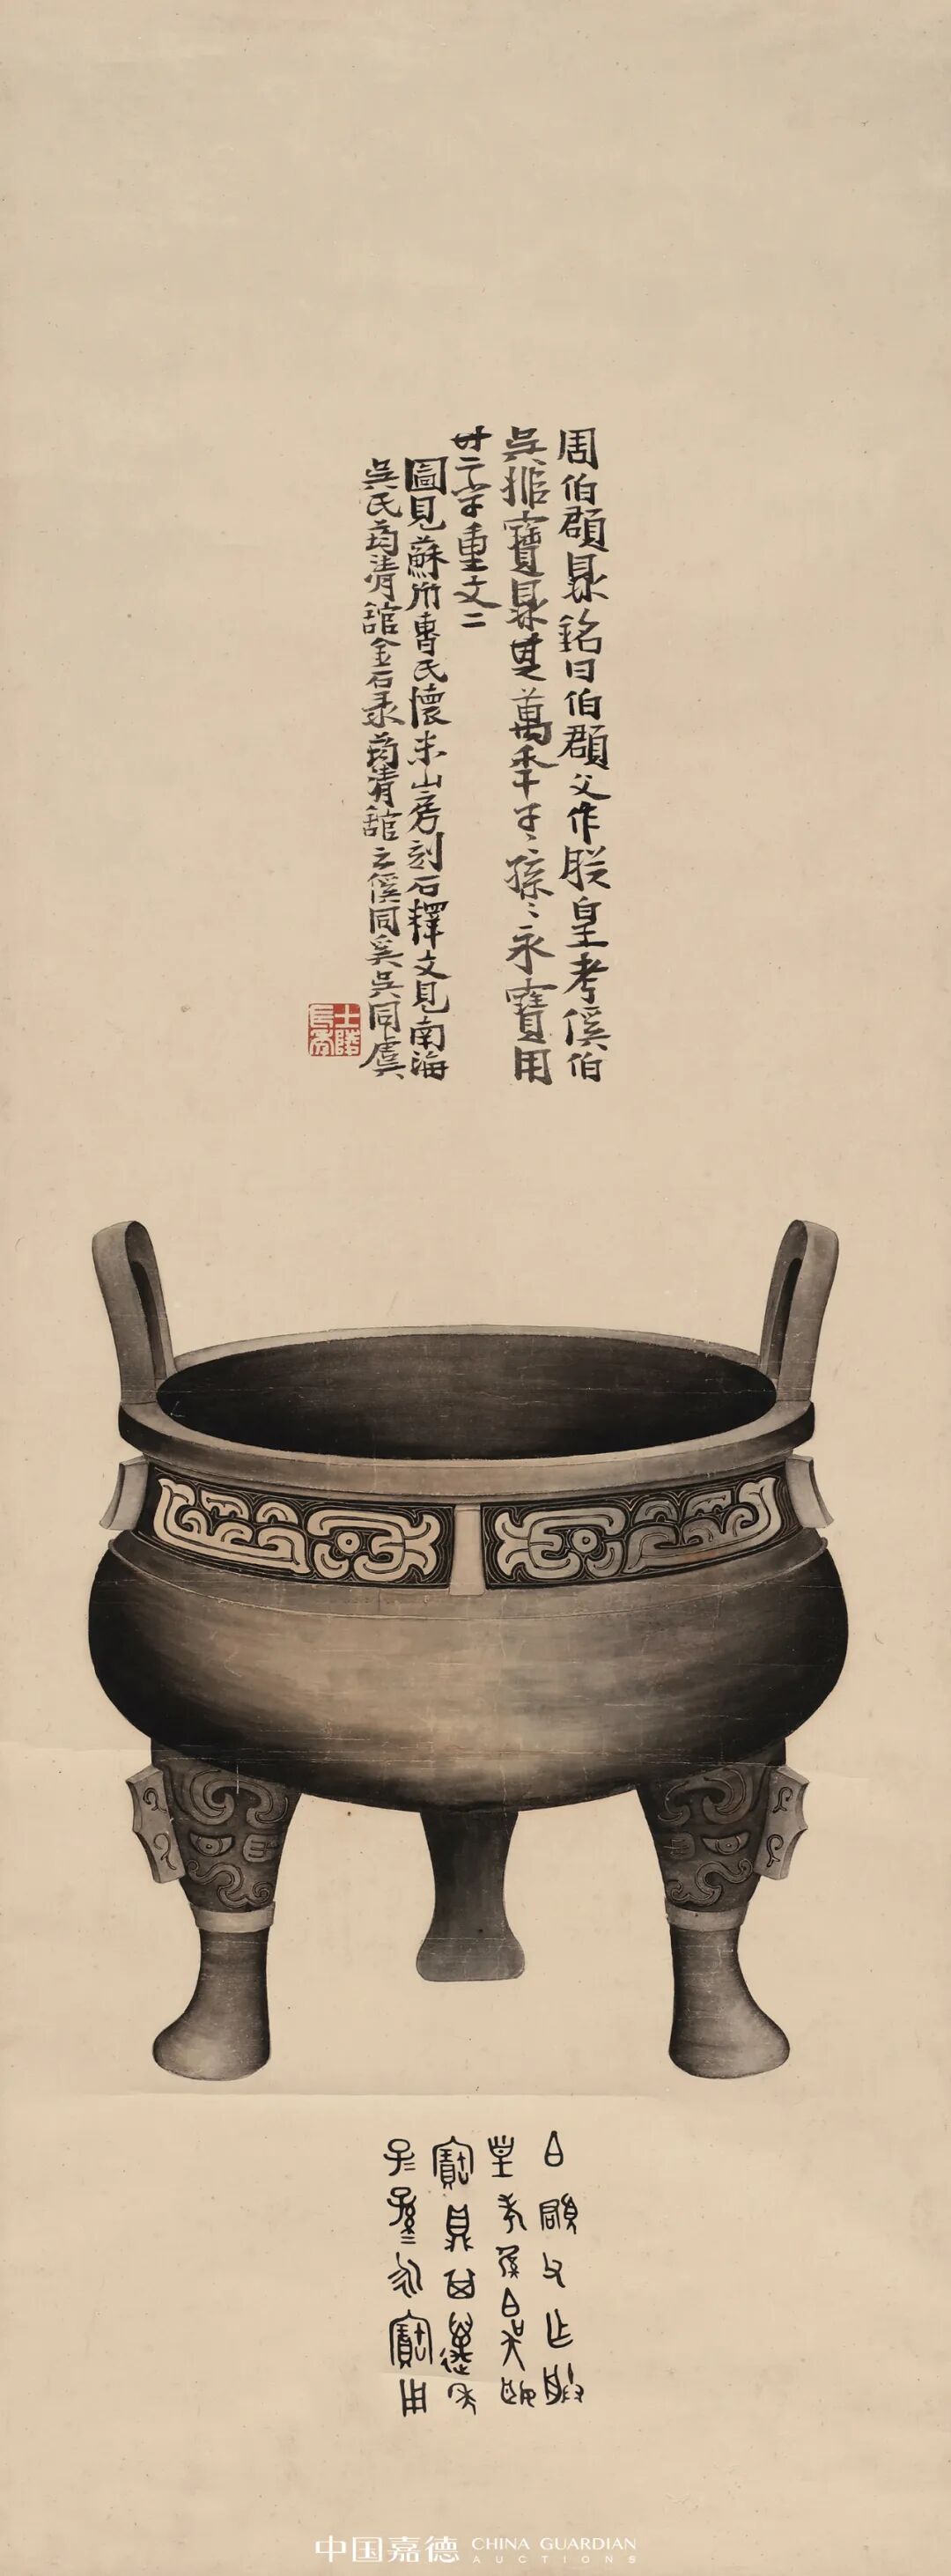 周伯頵鼎銘曰伯頵父作朕皇考傒伯
吳姬寶鼎其萬年子〻孫〻永寶用
廿二字重文二
圖見蘇州曹氏懷米山房刻石釋文見南海
吳氏筠清館金石录筠清館云傒同奚吳同虞
白頵父乍朕
皇考傒白吳姬
寶鼎其萬年
子〻孫〻永寶用
中国嘉德 CHINA GUARDIAN
AUCTIONS